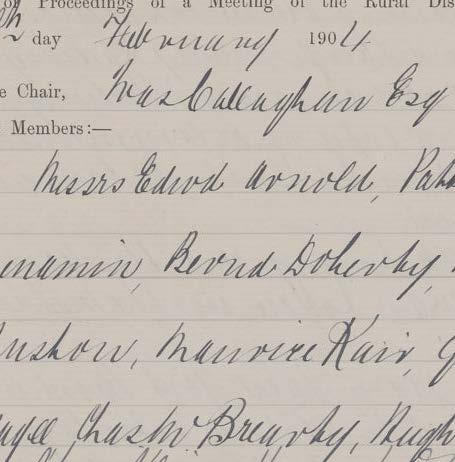 of Proceedings of a Meeting of the Rural Dis
day February 1904
e Chair, Callaghan Esq
Members:—
Messrs Edwd Arnold, Pat
Bernd Doherty,
Maurice
Chas Mc Brearty, Hugh